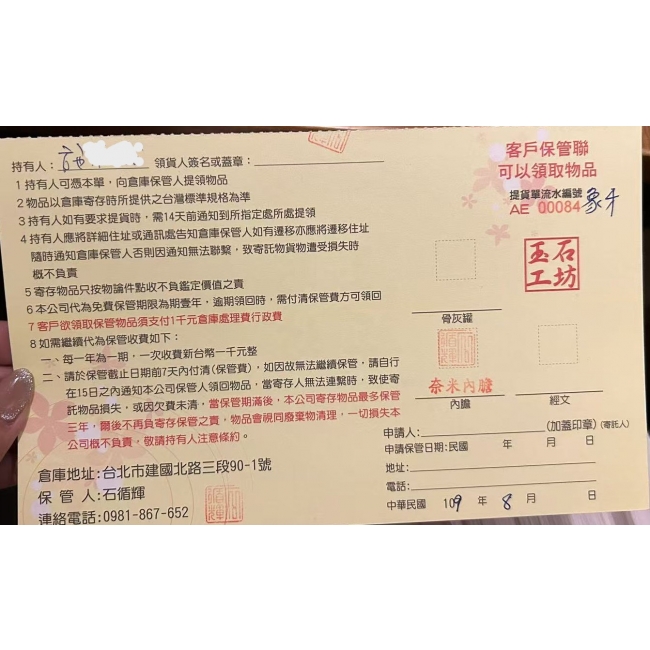 持有人：
領貨人簽名或蓋章：
1 持有人可憑本單，向倉庫保管人提領物品
2 物品以倉庫寄存時所提供之台灣標準規格為準
3 持有人如有要求提貨時，需14天前通知到所指定處所處提領
4 持有人應將詳細住址或通訊處告知倉庫保管人如有遷移亦應將遷移住址
隨時通知倉庫保管人否則因通知無法聯繫，致寄託物貨物遭受損失時
概不負責
5 寄存物品只按物論件點收不負鑑定價值之責
6 本公司代為免費保管期限為期壹年，逾期領回時，需付清保管費方可領回
7 客戶欲領取保管物品須支付1千元倉庫處理費行政費
8 如需繼續代為保管收費如下：
一、每一年為一期，一次收費新台幣一千元整
二、請於保管截止日期前7天內付清(保管費)，如因故無法繼續保管，請自行
在15日之內通知本公司保管人領回物品，當寄存人無法連繫時，致使寄
託物品損失，或因欠費未清，當保管期滿後，本公司寄存物品最多保管
三年，爾後不再負寄存保管之責，物品會視同廢棄物清理，一切損失本
公司概不負責，敬請持有人注意條約。
倉庫地址:台北市建國北路三段90-1號
保 管 人:石循輝
連絡電話:0981-867-652
客戶保管聯
可以領取物品
提貨單流水編號
AE 00084 象牙
玉石
工坊
骨灰罐
奈米內膽
內膽
經文
申請人：
(加蓋印章)(寄託人)
申請保管日期:民國 年 月 日
地址：
電話：
中華民國 109 年 8 月 日